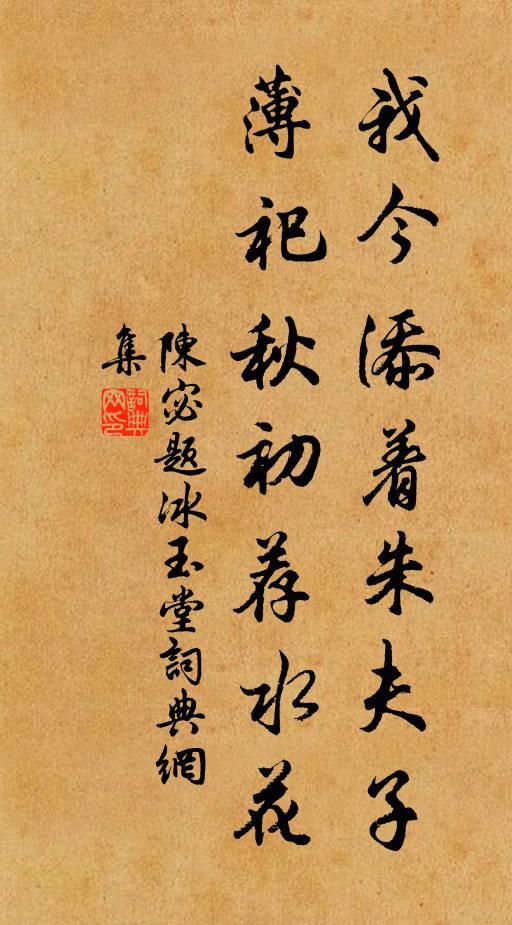 我今添着朱夫子
薄祀秋初荐水花
陳宓題冰玉堂詞典網
集
詞典
网印